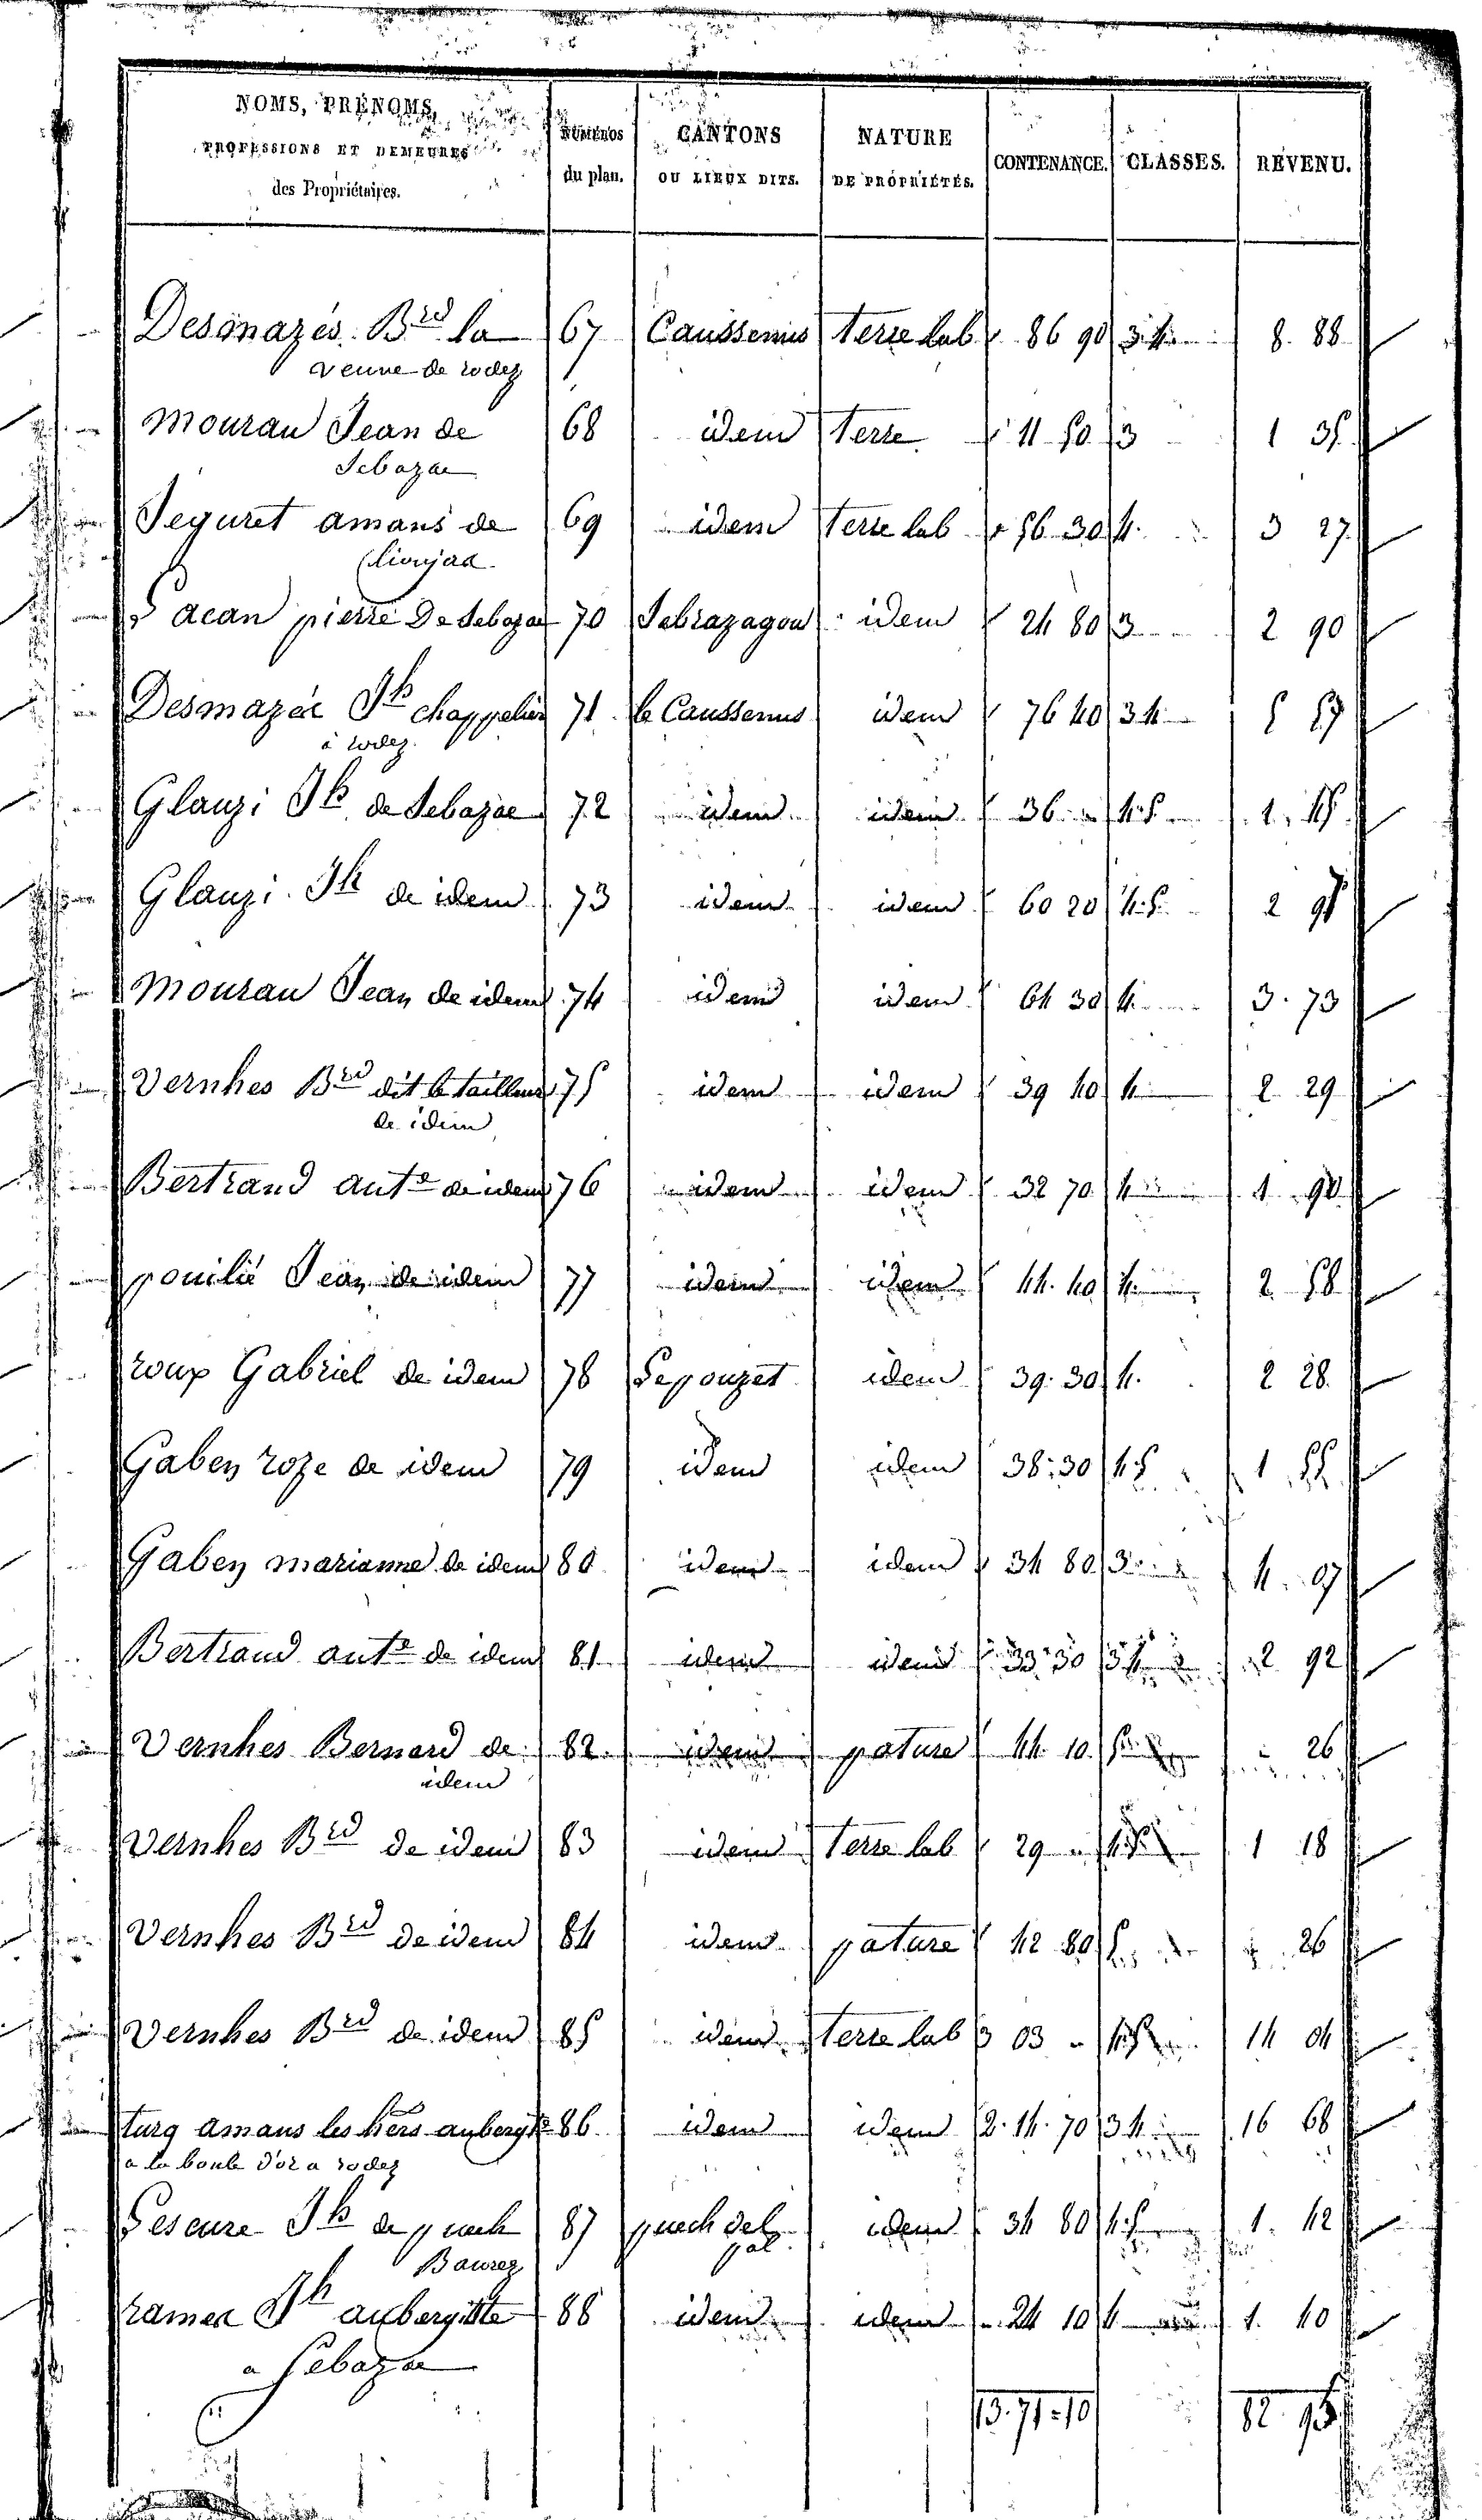 NOMS, PRÉNOMS, PROFESSIONS ET DEMEURES des Propriétaires. NUMÉROS du plan. CANTONS OU LIEUX DITS. NATURE DE PROPRIÉTÉS. CONTENANCE. CLASSES. REVENU.
Desmazes Brd la 67 Caussenus terre lab 86 90 3.4 8. 88
veuve de rodez
mourau Jean de 68 idem terre 11 50 3 1 35
Sebazac
Seguret amans de 69 idem terre lab 56 30 4. 3 27
Lioujas
Lacan pierre De Sebazac 70 Sebrazagou idem 24 80 3 2 90
Desmazes Jh chappelier 71 le Caussenus idem 76 40 3 4 5 57
à rodez
Glauzi Jh de Sebazac 72 idem idem 36 " 4.5 1. 45
Glauzi Jh de idem 73 idem idem 60 20 4.5 2 95
mourau Jean de idem 74 idem idem 64 30 4 3. 73
Vernhes Brd dit le tailleur 75 idem idem 39 40 4 2 29
de idem
Bertrand ante de idem 76 idem idem 32 70 4 1 90
pouilié Jean de idem 77 idem idem 44. 40 4 2 58
roux Gabriel de idem 78 Le pouzet idem 39. 30 4. 2 28
Gaben roze de idem 79 idem idem 38. 30 4.5 1 55
Gaben marianne de idem 80 idem idem 34 80 3 4. 07
Bertrand ante de idem 81 idem idem 33 30 3 4 2 92
Vernhes Bernard de 82 idem pature 44. 10 5 " 26
idem
Vernhes Brd de idem 83 idem terre lab 29 " 4.5 1 18
Vernhes Brd de idem 84 idem pature 42 80 5 " 26
Vernhes Brd de idem 85 idem terre lab 3 03 " 4.5 14 04
turq amans les hers aubergte 86 idem idem 2. 14. 70 3 4 16 68
a la boule d'or a rodez
Lescure Jh de puech 87 puech del idem 34 80 4.5 1. 42
Baurez pal
ramer Jh aubergiste 88 idem idem 24 10 4 1. 40
a Sebazac
13. 71. 10 82 95